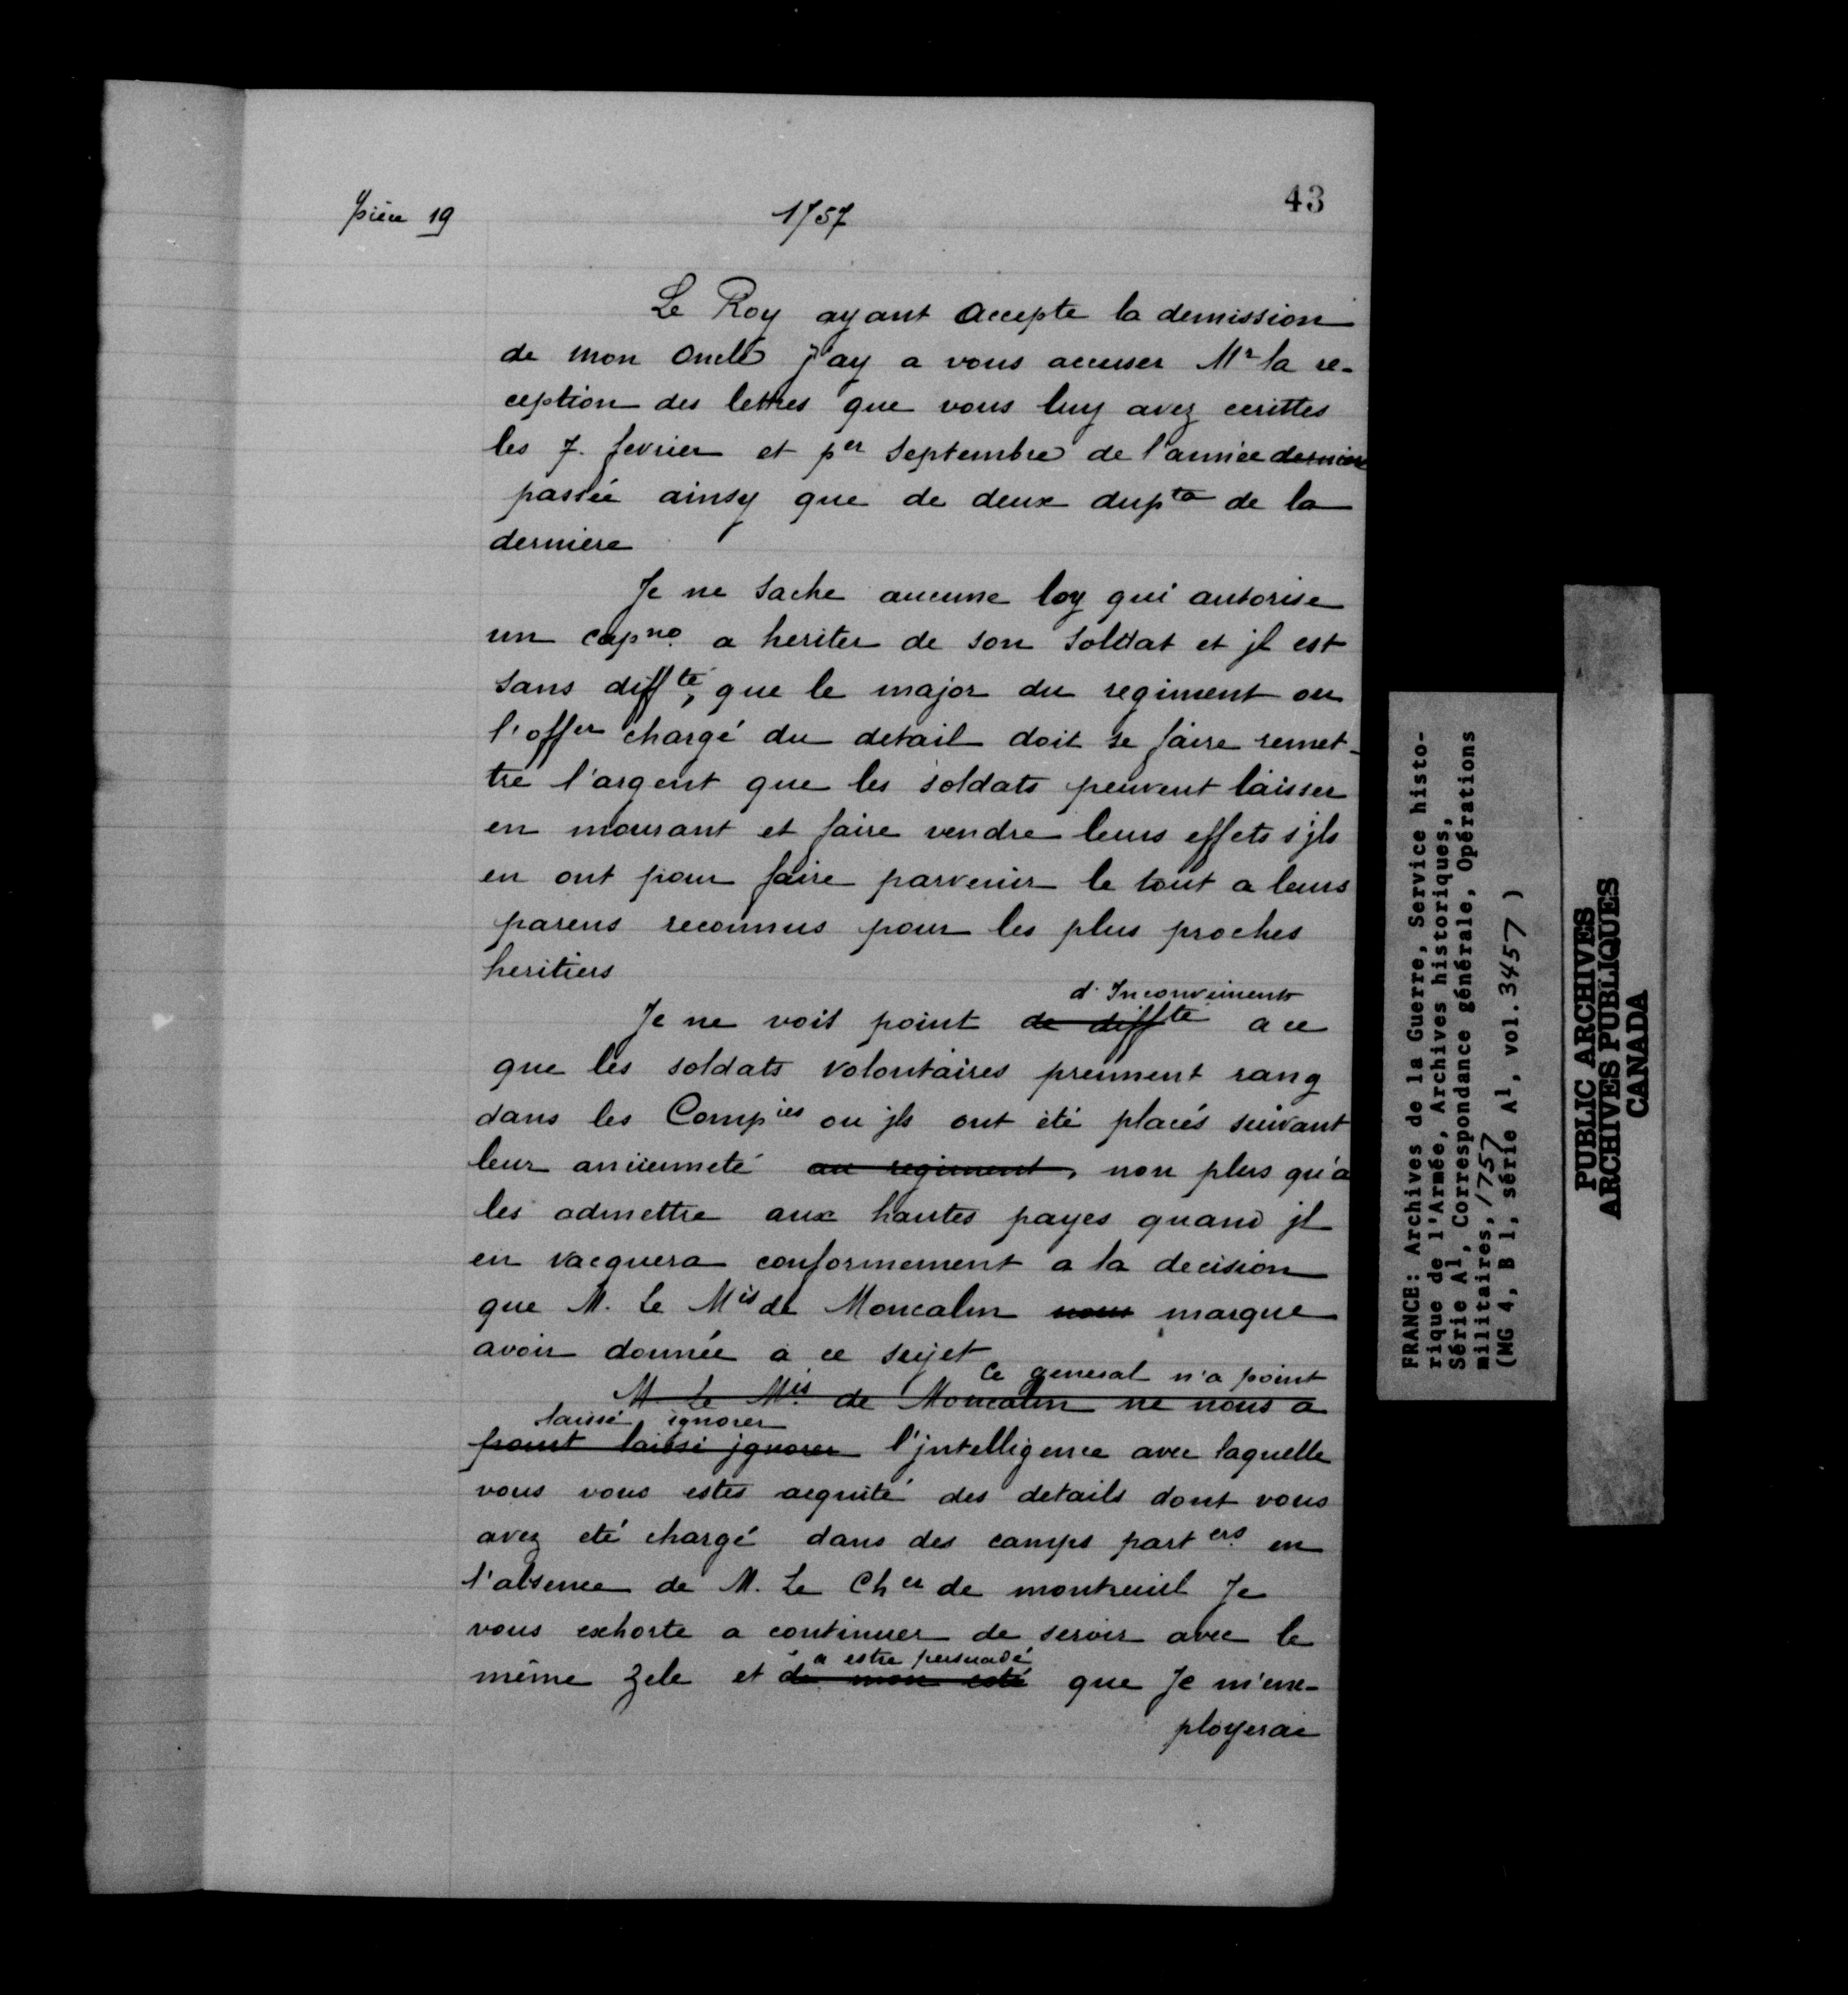 43
pièce 19
1757
Le Roy ayant accepte la demission
de mon oncle j'ay a vous accuser Mr la re-
ception des lettres que vous luy avez ecrittes
les 7. fevrier et per septembre de l'année derniere
passée ainsy que de deux dupta de la
derniere
Je ne sache aucune loy qui autorise
un capne. a heriter de son soldat et jl est
sans diffté, que le major du regiment ou
l'offer chargé du detail doit se faire remet-
tre l'argent que les soldats peuvent laisser
en mourant et faire vendre leurs effets s'jls
en ont pour faire parvenir le tout a leurs
parens reconnus pour les plus proches
heritiers
d'Inconvenients
Je ne voit point de diffte a ce
que les soldats volontaires prennent rang
dans les Compies ou jls ont été placés suivant
leur ancienneté au regiment, non plus qu'a
les admettre aux hautes payes quand jl
en vacquera conformement a la decision
que M. le Mis de Moncalm nous marque
avoir donnée a ce sujet
Ce general n'a point
M le Mis. de Moncalm ne nous a
laissé ignorer
point laissé jgnorer l'jntelligence avec laquelle
vous vous estes acquité des details dont vous
avez eté chargé dans des camps parters. en
l'absence de M. Le Cher de montreuil Je
vous exhorte a continuer de servir avec le
a estre persuadé
même zele et de mon coté que Je m'em-
ployerai
FRANCE: Archives de la Guerre, Service histo-
rique de l'Armée, Archives historiques,
Série A1, Correspondance générale, Opérations
militaires, 1757
(MG 4, B 1, série A1, vol. 3457 )
PUBLIC ARCHIVES
ARCHIVES PUBLIQUES
CANADA